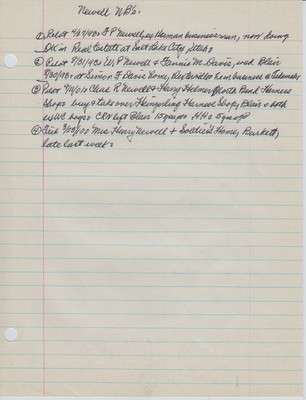 Newell NB's.
① Pilot 9/27/90: F P Newell, ex Herman businessman, now doing
OK in Real Estate at Salt Lake City, Utah.
② Pilot 7/31/90: W P Newell & Fannie M. Davis, wed Blair
7/30/90: at Simon F Davis home, Rev. in business at
③ Pilot 7/11/01 Chas R Newell & Harry Helmer North Bend Harness
Shops buy & take over Hampling Harness Shop, Blair & both
will CRN left Blair 15 yrs ago HH 5 yrs ago
④ Trib 3/23/00 Mrs Henry Newell + Soldiers Home, Burkett,
late last week.